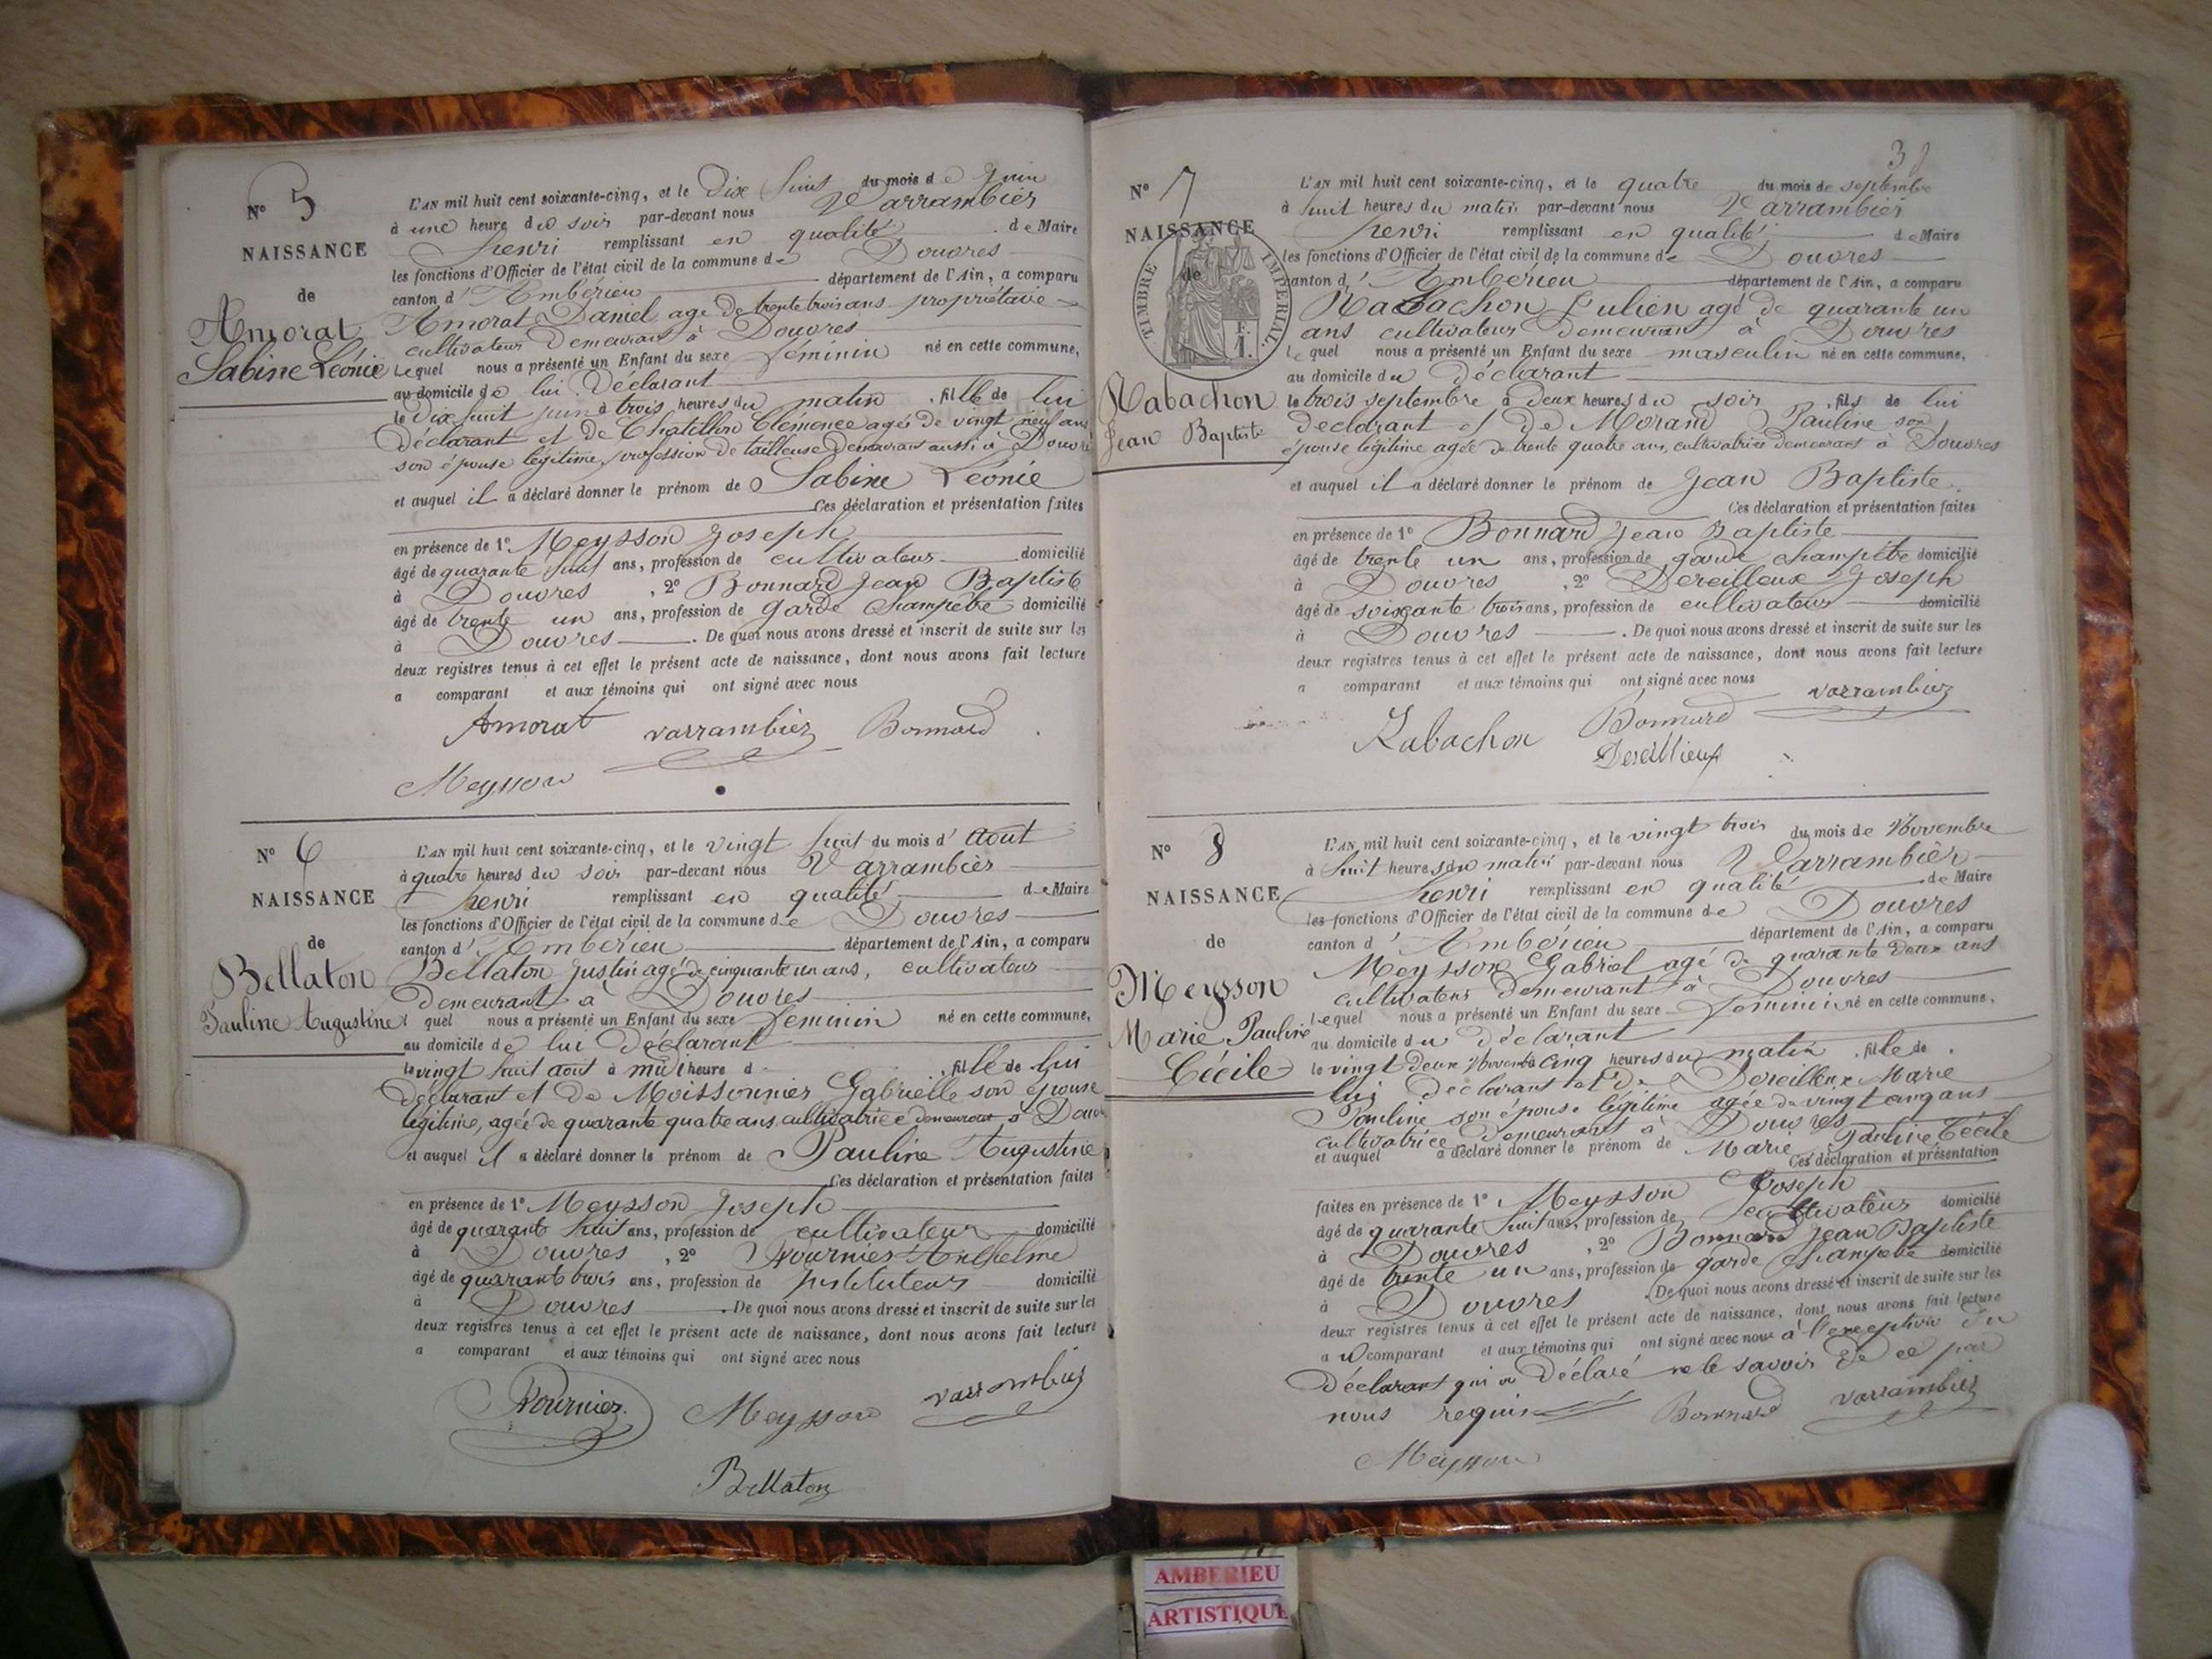 N° 5
NAISSANCE
de
Amorat
Sabine Léonie
L'AN mil huit cent soixante-cinq, et le Dix huit du mois de Juin
à une heure du soir par-devant nous Varrambier
henri remplissant en qualité de Maire
les fonctions d'Officier de l'état civil de la commune de Douvres
canton d' Ambérieu département de l'Ain, a comparu
Amorat Daniel agé de trente trois ans propriétaire
cultivateur demeurant à Douvres
Lequel nous a présenté un Enfant du sexe féminin né en cette commune,
au domicile de lui Déclarant
le Dix huit juin à trois heures du matin , fille de lui
Déclarant et de Chatillon Clémence agée de vingt neuf ans
son épouse légitime, profession de tailleuse demeurant aussi à Douvres
et auquel il a déclaré donner le prénom de Sabine Léonie
Ces déclaration et présentation faites
en présence de 1° Meysson Joseph
âgé de quarante huit ans, profession de cultivateur domicilié
à Douvres , 2° Bonnard Jean Baptiste
âgé de trente un ans, profession de garde champêtre domicilié
à Douvres . De quoi nous avons dressé et inscrit de suite sur les
deux registres tenus à cet effet le présent acte de naissance, dont nous avons fait lecture
a comparant et aux témoins qui ont signé avec nous
Amorat varrambier Bonnard
Meysson
N° 6
NAISSANCE
de
Bellaton
Pauline Augustine
L'AN mil huit cent soixante-cinq, et le vingt huit du mois d' Aout
à quatre heures du soir par-devant nous Varrambier
henri remplissant en qualité de Maire
les fonctions d'Officier de l'état civil de la commune de Douvres
canton d' Ambérieu département de l'Ain, a comparu
Bellaton Justin agé de cinquante un ans, cultivateur
demeurant à Douvres
l quel nous a présenté un Enfant du sexe féminin né en cette commune,
au domicile de lui Déclarant
le vingt huit aout à midi heure d , fille de lui
Déclarant et de Moissonnier Gabrielle son épouse
légitime, agée de quarante quatre ans cultivatrice demeurant à Douvres
et auquel il a déclaré donner le prénom de Pauline Augustine
Ces déclaration et présentation faites
en présence de 1° Meysson Joseph
âgé de quarante huit ans, profession de cultivateur domicilié
à Douvres , 2° Fournier Anthelme
âgé de quarante trois ans, profession de Instituteur domicilié
à Douvres . De quoi nous avons dressé et inscrit de suite sur les
deux registres tenus à cet effet le présent acte de naissance, dont nous avons fait lecture
a comparant et aux témoins qui ont signé avec nous
Fournier Meysson varrambier
Bellaton
N° 7
NAISSANCE
de
TIMBRE IMPERIAL
Rabachon
Jean Baptiste
L'AN mil huit cent soixante-cinq, et le quatre du mois de septembre
à huit heures du matin par-devant nous Varrambier
henri remplissant en qualité de Maire
les fonctions d'Officier de l'état civil de la commune de Douvres
canton d' Ambérieu département de l'Ain, a comparu
Rabachon Julien agé de quarante un
ans cultivateur demeurant à Douvres
lequel nous a présenté un Enfant du sexe masculin né en cette commune,
au domicile du Déclarant
le trois septembre à deux heures du soir , fils de lui
declarant et de Morand Pauline son
épouse légitime agée de trente quatre ans, cultivatrice demeurant à Douvres
et auquel il a déclaré donner le prénom de Jean Baptiste
Ces déclaration et présentation faites
en présence de 1° Bonnard Jean Baptiste
âgé de trente un ans, profession de garde champêtre domicilié
à Douvres , 2° Dereilleux Joseph
âgé de soixante trois ans, profession de cultivateur domicilié
à Douvres . De quoi nous avons dressé et inscrit de suite sur les
deux registres tenus à cet effet le présent acte de naissance, dont nous avons fait lecture
a comparant et aux témoins qui ont signé avec nous
Rabachon Bonnard varrambier
N° 8
NAISSANCE
de
Meysson
Marie Pauline
Cécile
L'AN mil huit cent soixante-cinq, et le vingt trois du mois de Novembre
à huit heures du matin par-devant nous Varrambier
henri remplissant en qualité de Maire
les fonctions d'Officier de l'état civil de la commune de Douvres
canton d' Ambérieu département de l'Ain, a comparu
Meysson Gabriel agé de quarante deux ans
cultivateur demeurant à Douvres
Lequel nous a présenté un Enfant du sexe féminin né en cette commune,
au domicile du déclarant
le vingt deux Novembre cinq heures du matin , fille de
lui déclarant et de Dereilleux Marie
Pauline son épouse légitime agée de vingt cinq ans
cultivatrice demeurant à Douvres
et auquel a déclaré donner le prénom de Marie Pauline Cécile
Ces déclaration et présentation
faites en présence de 1° Meysson Joseph
âgé de quarante huit ans, profession de cultivateur domicilié
à Douvres , 2° Bonnard Jean Baptiste
âgé de trente un ans, profession de garde champêtre domicilié
à Douvres . De quoi nous avons dressé et inscrit de suite sur les
deux registres tenus à cet effet le présent acte de naissance, dont nous avons fait lecture
au comparant et aux témoins qui ont signé avec nous à l'exception du
Déclarant qui a Déclaré ne le savoir de ce par
nous requis Bonnard varrambier
Meysson
AMBERIEU
ARTISTIQUE